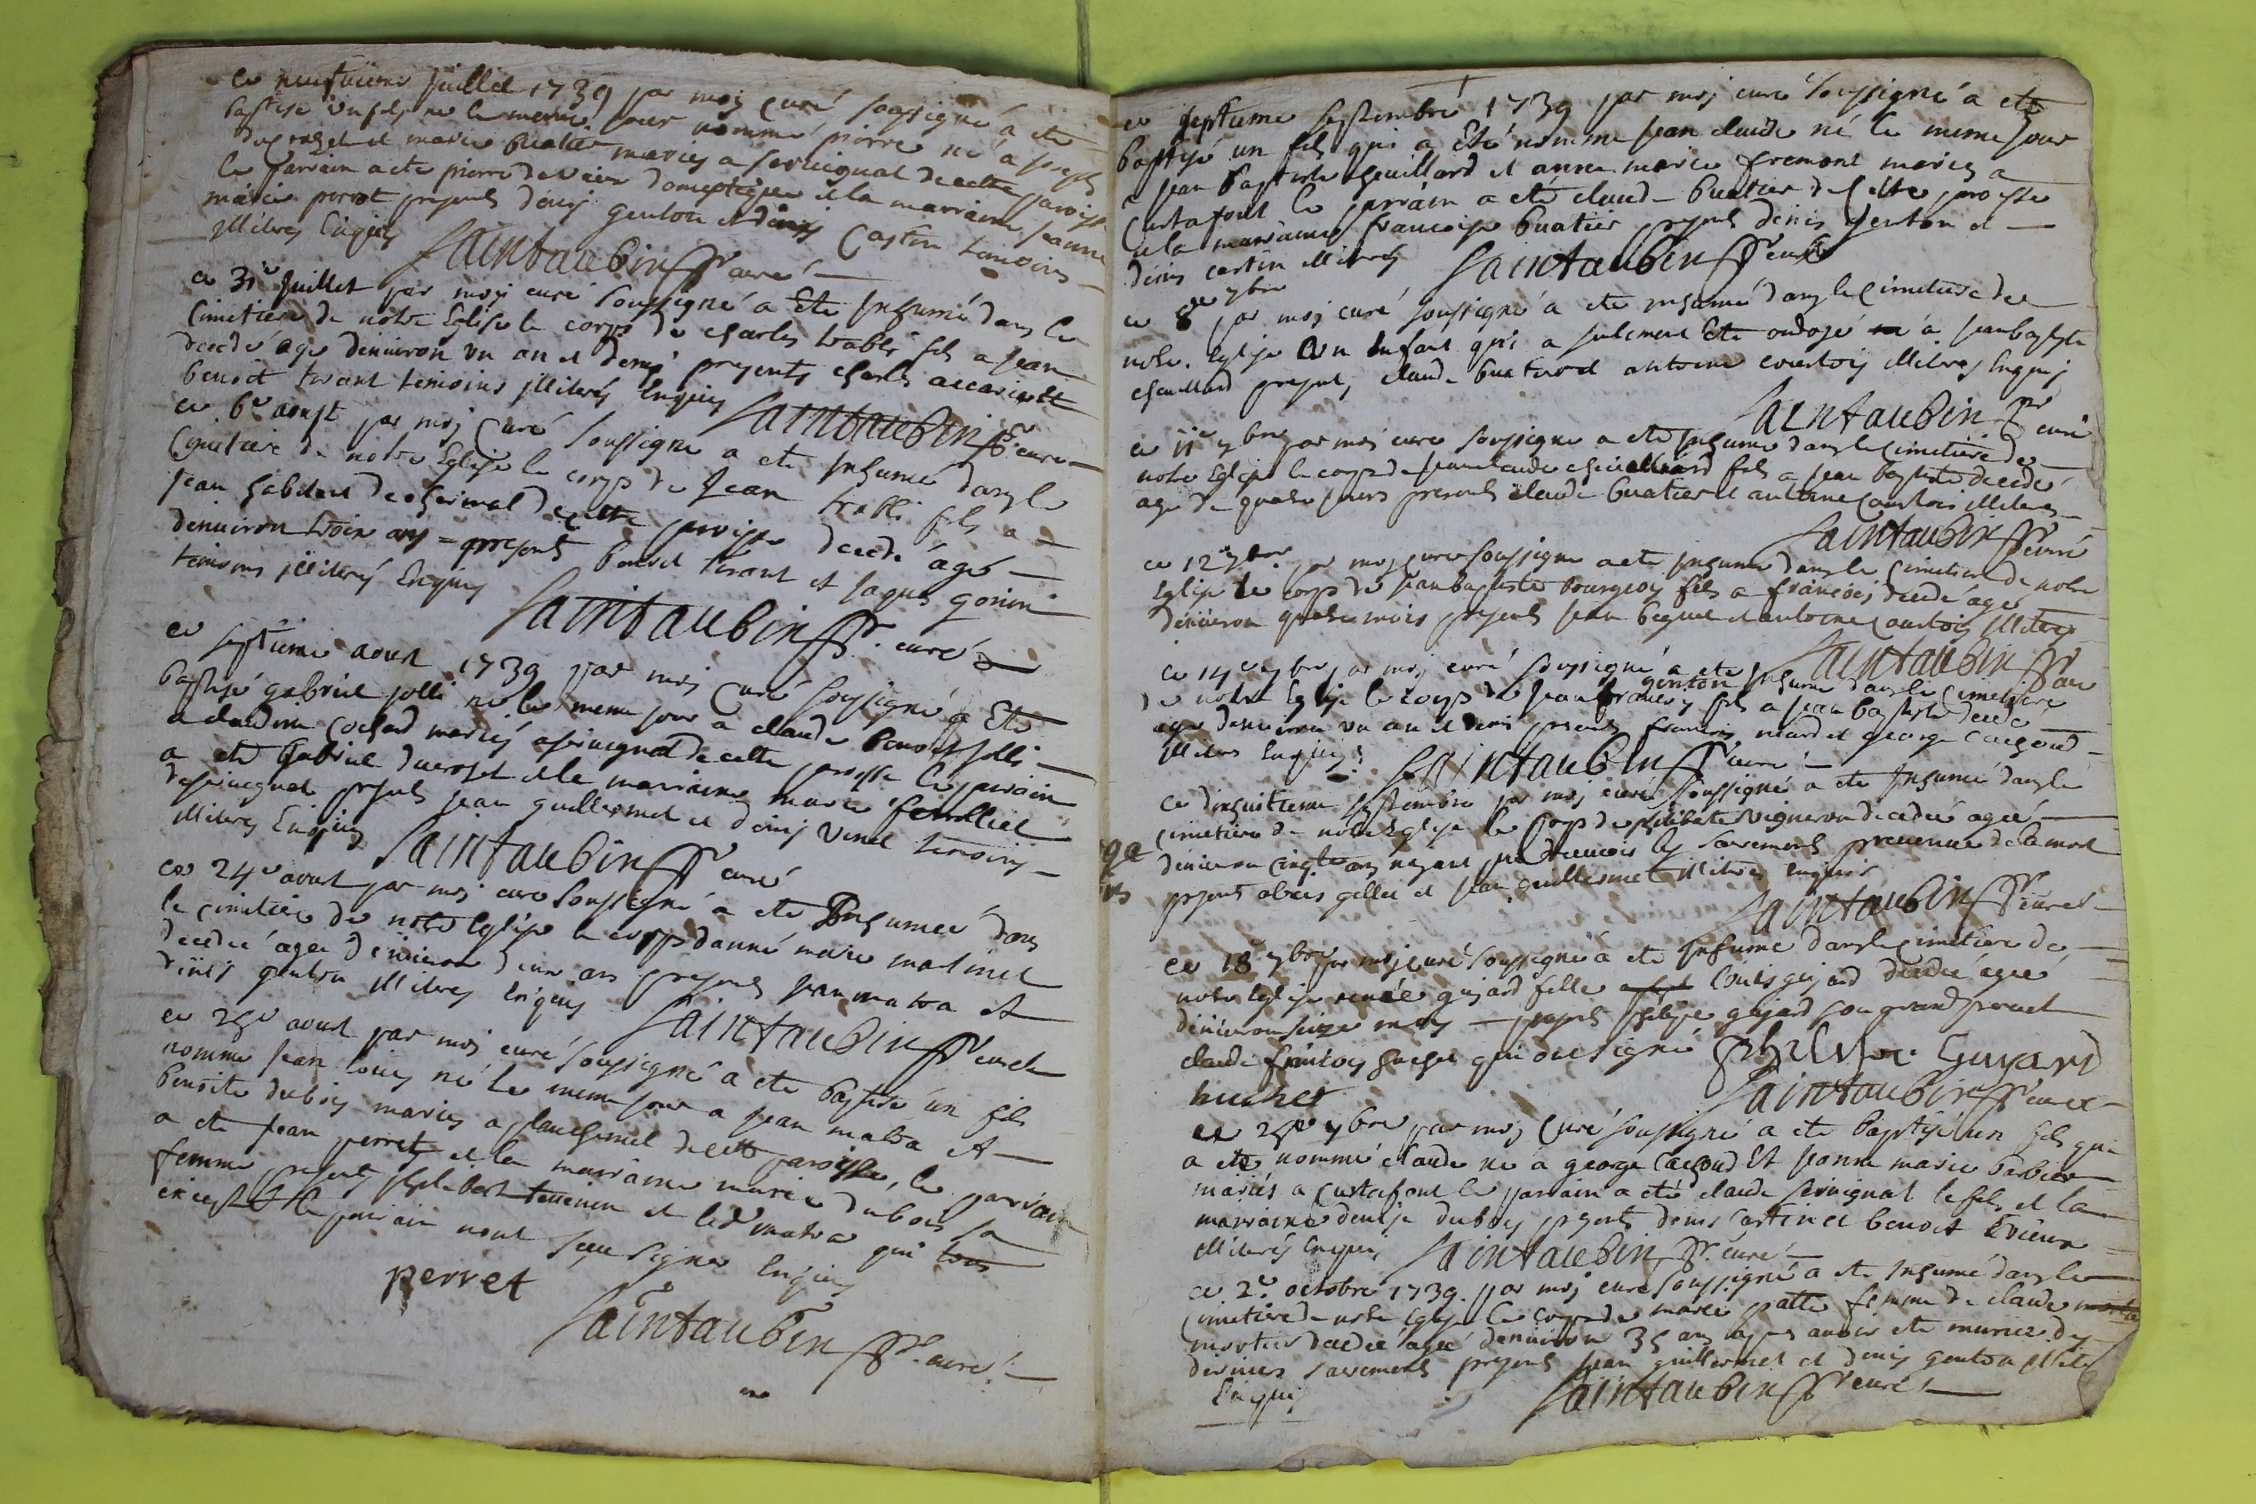 ce neufvieme juillet 1739 par moy curé soussigné a ete
baptisé un fils né le meme jour nommé pierre né a joseph
ducrozet et marie buatier mariés a servignat de cette paroisse
le parrain a ete pierre domestique et la marraine jeanne
marie perrot presents denis genton et denis castin temoins
illitrés enquis Saintaubin ptre curé
ce 31e juillet par moy curé soussigné a ete inhumé dans le
cimetiere de notre eglise le corps de charles trabli fils a jean
decedé agé denviron un an et demi presents charle
benoit tirant temoins illitrés enquis Saintaubin ptre curé
ce 6e aoust par moy curé soussigné a ete inhumé dans le
cimetiere de notre eglise le corps de jean trabli fils a
jean habitant de de cette paroisse decedé agé
denviron trois ans presents benoit tirant et jaque gonin
temoins illitrés enquis
Saintaubin ptre curé
ce septieme aoust 1739 par moy curé soussigné a ete
baptisé gabriel jolli né le meme jour a claude benoit jolli
a claudine cochard mariés a servignat de cette paroisse le parrain
a ete gabriel ducroset et la marraine marie
de servignat presents jean guillermet et denis vinet temoins
illitrés enquis Saintaubin ptre curé
ce 24e aoust par moy curé soussigné a ete inhumée dans
le cimetiere de notre eglise le corps danne marie martinet
decedée agée denviron deux ans presents jean matra et
denis genton illitrés enquis Saintaubin ptre curé
ce 25e aoust par moy curé soussigné a ete baptisé un fils
nommé jean louis né le meme jour a jean matra et
benoite dubois mariés a planchemel de cette paroisse, le parrain
a ete jean perret et la marraine marie dubois sa
femme presents philibert et matra qui tous
excepté le parrain nont sceu signer enquis
perret
Saintaubin ptre curé
ce septieme septembre 1739 par moy curé soussigné a ete
baptisé un fils qui a eté nommé jean claude né le meme jour
a jean baptiste chevillard et anne marie fremont mariés a
curtafont le parrain a eté claude buatier de cette paroisse
et la marraine francoise buatier presents denis genton et
denis castin illitrés Saintaubin ptre curé
ce 8e 7bre par moy curé soussigné a ete inhumé dans le cimetiere de
notre eglise un enfant qui a seulement eté ondoyé a jean baptiste
chevillard presents claude buatier et antoine courtois illitres enquis
Saintaubin ptre curé
ce 11e 7bre par moy curé soussigné a ete inhumé dans le cimetiere de
notre eglise le corps de jean claude chevillard fils a jean baptiste decedé
agé de quatre jours presents claude buatier et antoine courtois illitres
Saintaubin ptre curé
ce 12e 7bre par moy curé soussigné a ete inhumé dans le cimetiere de notre
eglise le corps de jean baptiste bourgeois fils a francois decedé agé
denviron quatre mois presents jean et antoine courtois illitrés
Saintaubin ptre curé
ce 14e 7bre par moy curé soussigné a ete inhumé dans le cimetiere
de notre eglise le corps de jean francois genton fils a jean baptiste decedé
agé denviron un an et demi presents francois et george cachoud
illitres enquis Saintaubin ptre curé
ce dixhuitieme septembre par moy curé soussigné a ete inhumé dans le
cimetiere de notre eglise le corps de philiberte vigneron decedée agée
denviron cinqte ans nayant pu recevoir les sacrements prevenue de la mort
presents gillet et jean guillermet illitrés enquis
Saintaubin ptre curé
ce 18 7bre par moy curé soussigné a ete inhumé dans le cimetiere de
notre eglise guyard fille a louis guyard decedée agée
denviron seize mois presents philipe guyard son grand pere et
claude francois huchet qui ont signé philipe Guyard
huchet Saintaubin ptre curé
ce 25e 7bre par moy curé soussigné a ete baptisé un fils qui
a ete nommé claude né a george cachoud et jeanne marie barbier
mariés a curtafont le parrain a eté claude servignat le fils et la
marraine denise dubois presents denis castin et benoit
illitrés enquis Saintaubin ptre curé
ce 2e octobre 1739 par moy curé soussigné a ete inhumé dans le
cimetiere de notre eglise le corps de marie patte femme de claude
mortier decedée agée denviron 35 ans apres avoir ete munie des
derniers sacrements presents jean guillermet et denis genton illit
enquis Saintaubin ptre curé